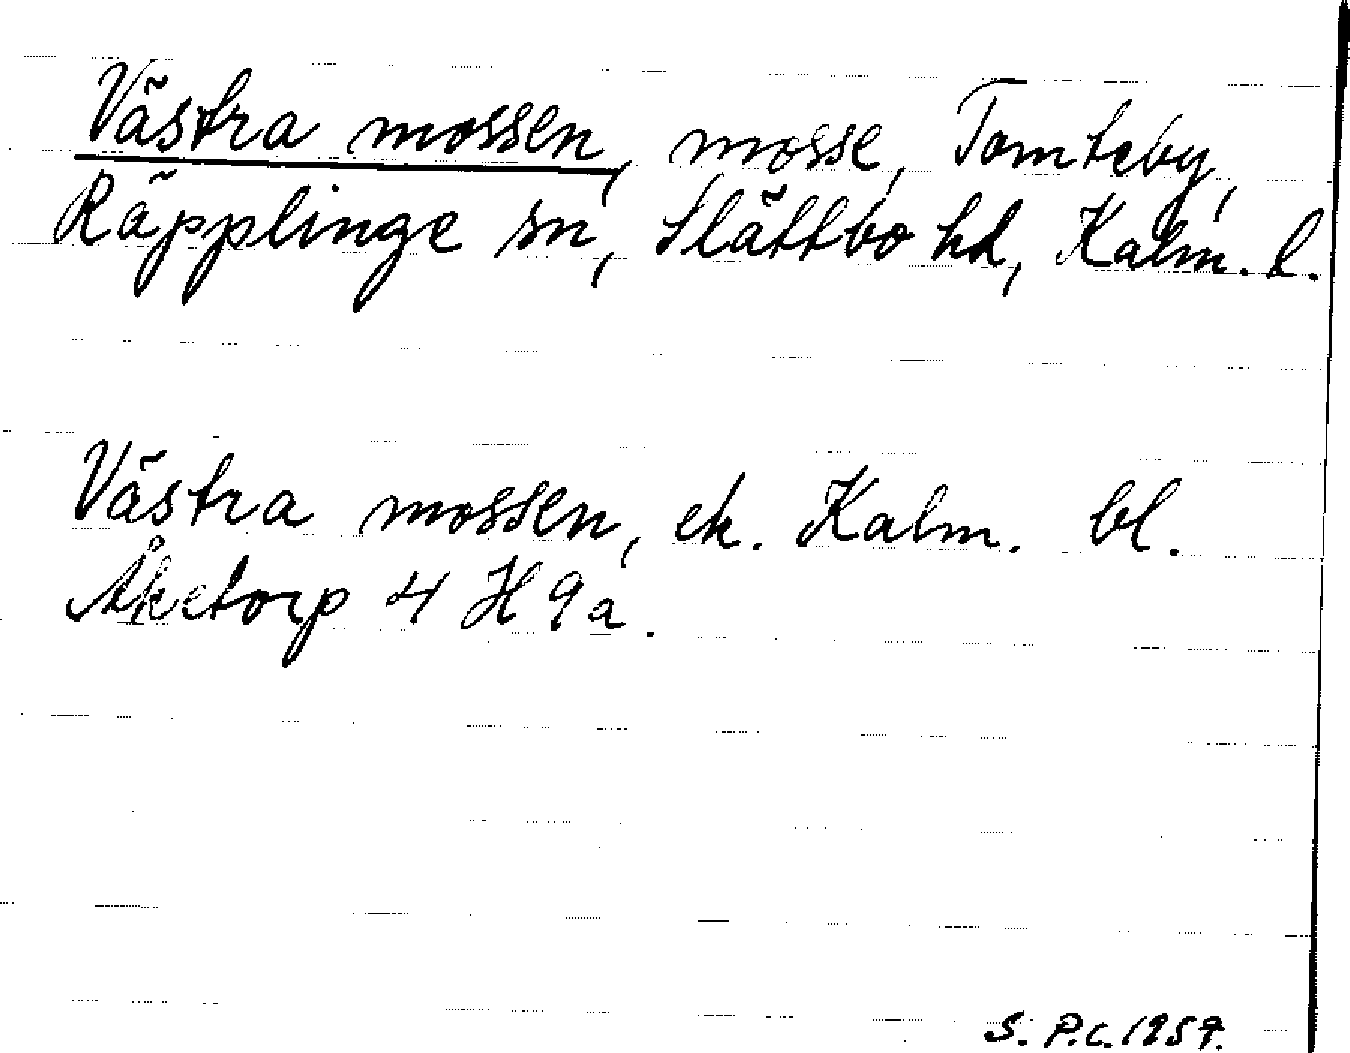 Västra mossen, mosse, Tomteby,
Räpplinge sn, Slättbo hd, Kalm. l.
Västra mossen, ek. Kalm. bl.
Åketorp 4 H 9a.
S. P.c. 1959.